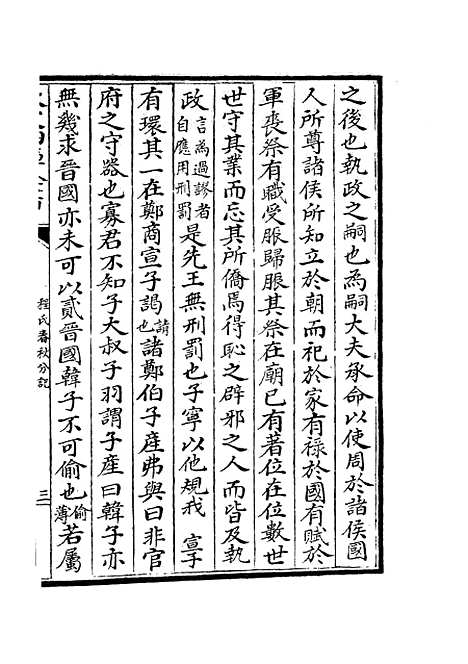 之後也執政之嗣也為嗣大夫承命以使周於諸侯國
人所尊諸侯所知立於朝而祀於家有祿於國有賦於
軍喪祭有職受脤歸脤其祭在廟已有著位在位數世
世守其業而忘其所僑焉得恥之辟邪之人而皆及執
政言為過謬者自應用刑罰是先王無刑罰也子寧以他規我 宣子
有環其一在鄭商宣子謁請也諸鄭伯子產弗與曰非官
府之守器也寡君不知子大叔子羽謂子產曰韓子亦
無幾求晉國亦未可以貳晉國韓子不可偷也偷薄若屬
程氏春秋分記
三